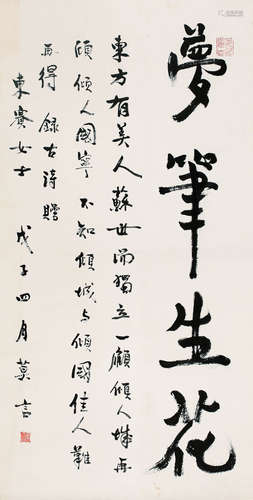 夢筆生花
東方有美人蘇世而獨立一顧傾人城再
傾傾人國寧不知傾城与傾國佳人難
再得 錄古詩贈
東賽女士 戊子四月莫言